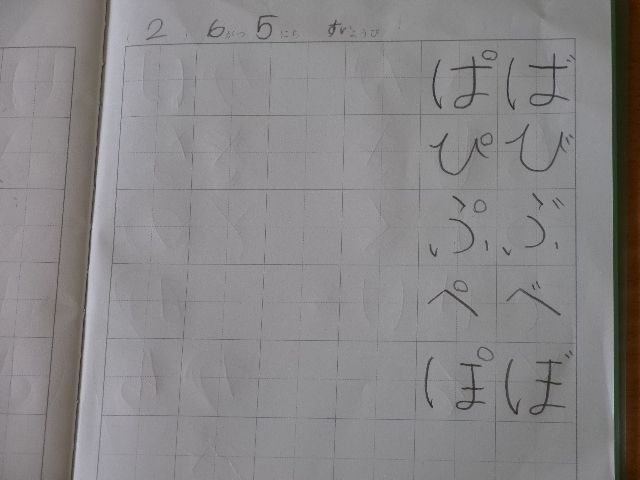 2 6がつ5にち すいようび
ばびぶべぼ
ぱぴぷぺぽ